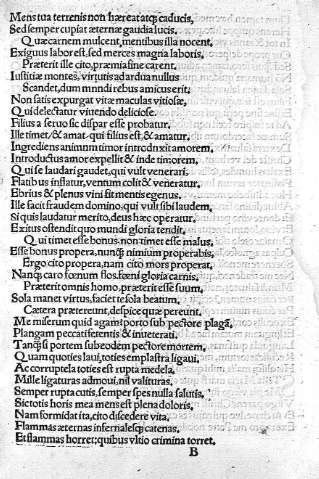 Mens tua terrenis non hæreat atq; caducis,
Sed semper cupiat æternæ gaudia lucis.
Quæ carnem mulcent, mentibus illa nocent.
Exiguus labor est, sed merces magna laboris,
Præterit ille cito, præmia fine carent.
Iustitiæ montes, virtutis ad ardua nullus
Scandet, dum mundi rebus amicus erit;
Non satis expurgat vitæ maculas vitiosæ,
Qui delectatur vitendo deliciose.
Filius a seruo sic dispar esse probatur,
Ille timet, & amat. qui filius est, & amatur.
Ingrediens animum timor introduxit amorem,
Introductus amor expellit & inde timorem,
Qui se laudari gaudet, qui vult venerari,
Flatibus inflatur, ventum colit & veneratur.
Ebrius & plenus vini fit mentis egenus.
Ille facit fraudem domino. qui vult sibi laudem,
Si quis laudatur merito, deus hæc operatur.
Exitus ostendit quo mundi gloria tendit.
Qui timet esse bonus. non timet esse malus,
Esse bonus propera, nunq̃ nimium properabis,
Ergo cito propera, nam cito mors properat,
Nanq; caro fœnum flos. fœni gloria carnis,
Præterit omnis homo, præterit esse suum,
Sola manet virtus, faciet te sola beatum,
Cætera prætereunt, despice quæ pereunt.
Me miserum quid agam: porto sub pectore plagã,
Plangam peccati setentis & inueterati.
Tanq̃ si portem subeodem pectore mortem,
Quam quoties laui, toties emplastra ligaui,
Ac corrupta toties est rupta medela.
Mille ligaturas admoui, nil valituras,
Semper rupta cutis, semper spes nulla salutis,
Sic totis horis mea mens est plena doloris,
Nam formidat ita, cito discedere vita,
Flammas æternas infernalesq; catenas.
Et flammas horret: quibus vltio crimina torret.
B